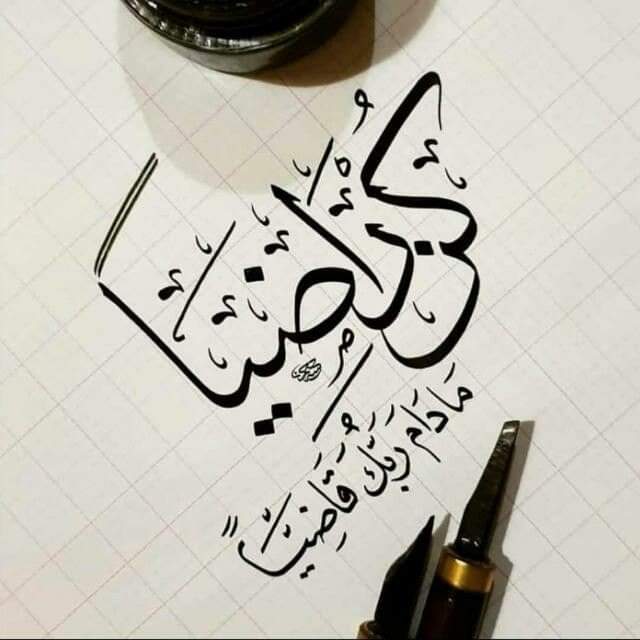 كُنْ رَاضِيَاً
مَا دَامَ رَبُّكَ قَاضِيَاً